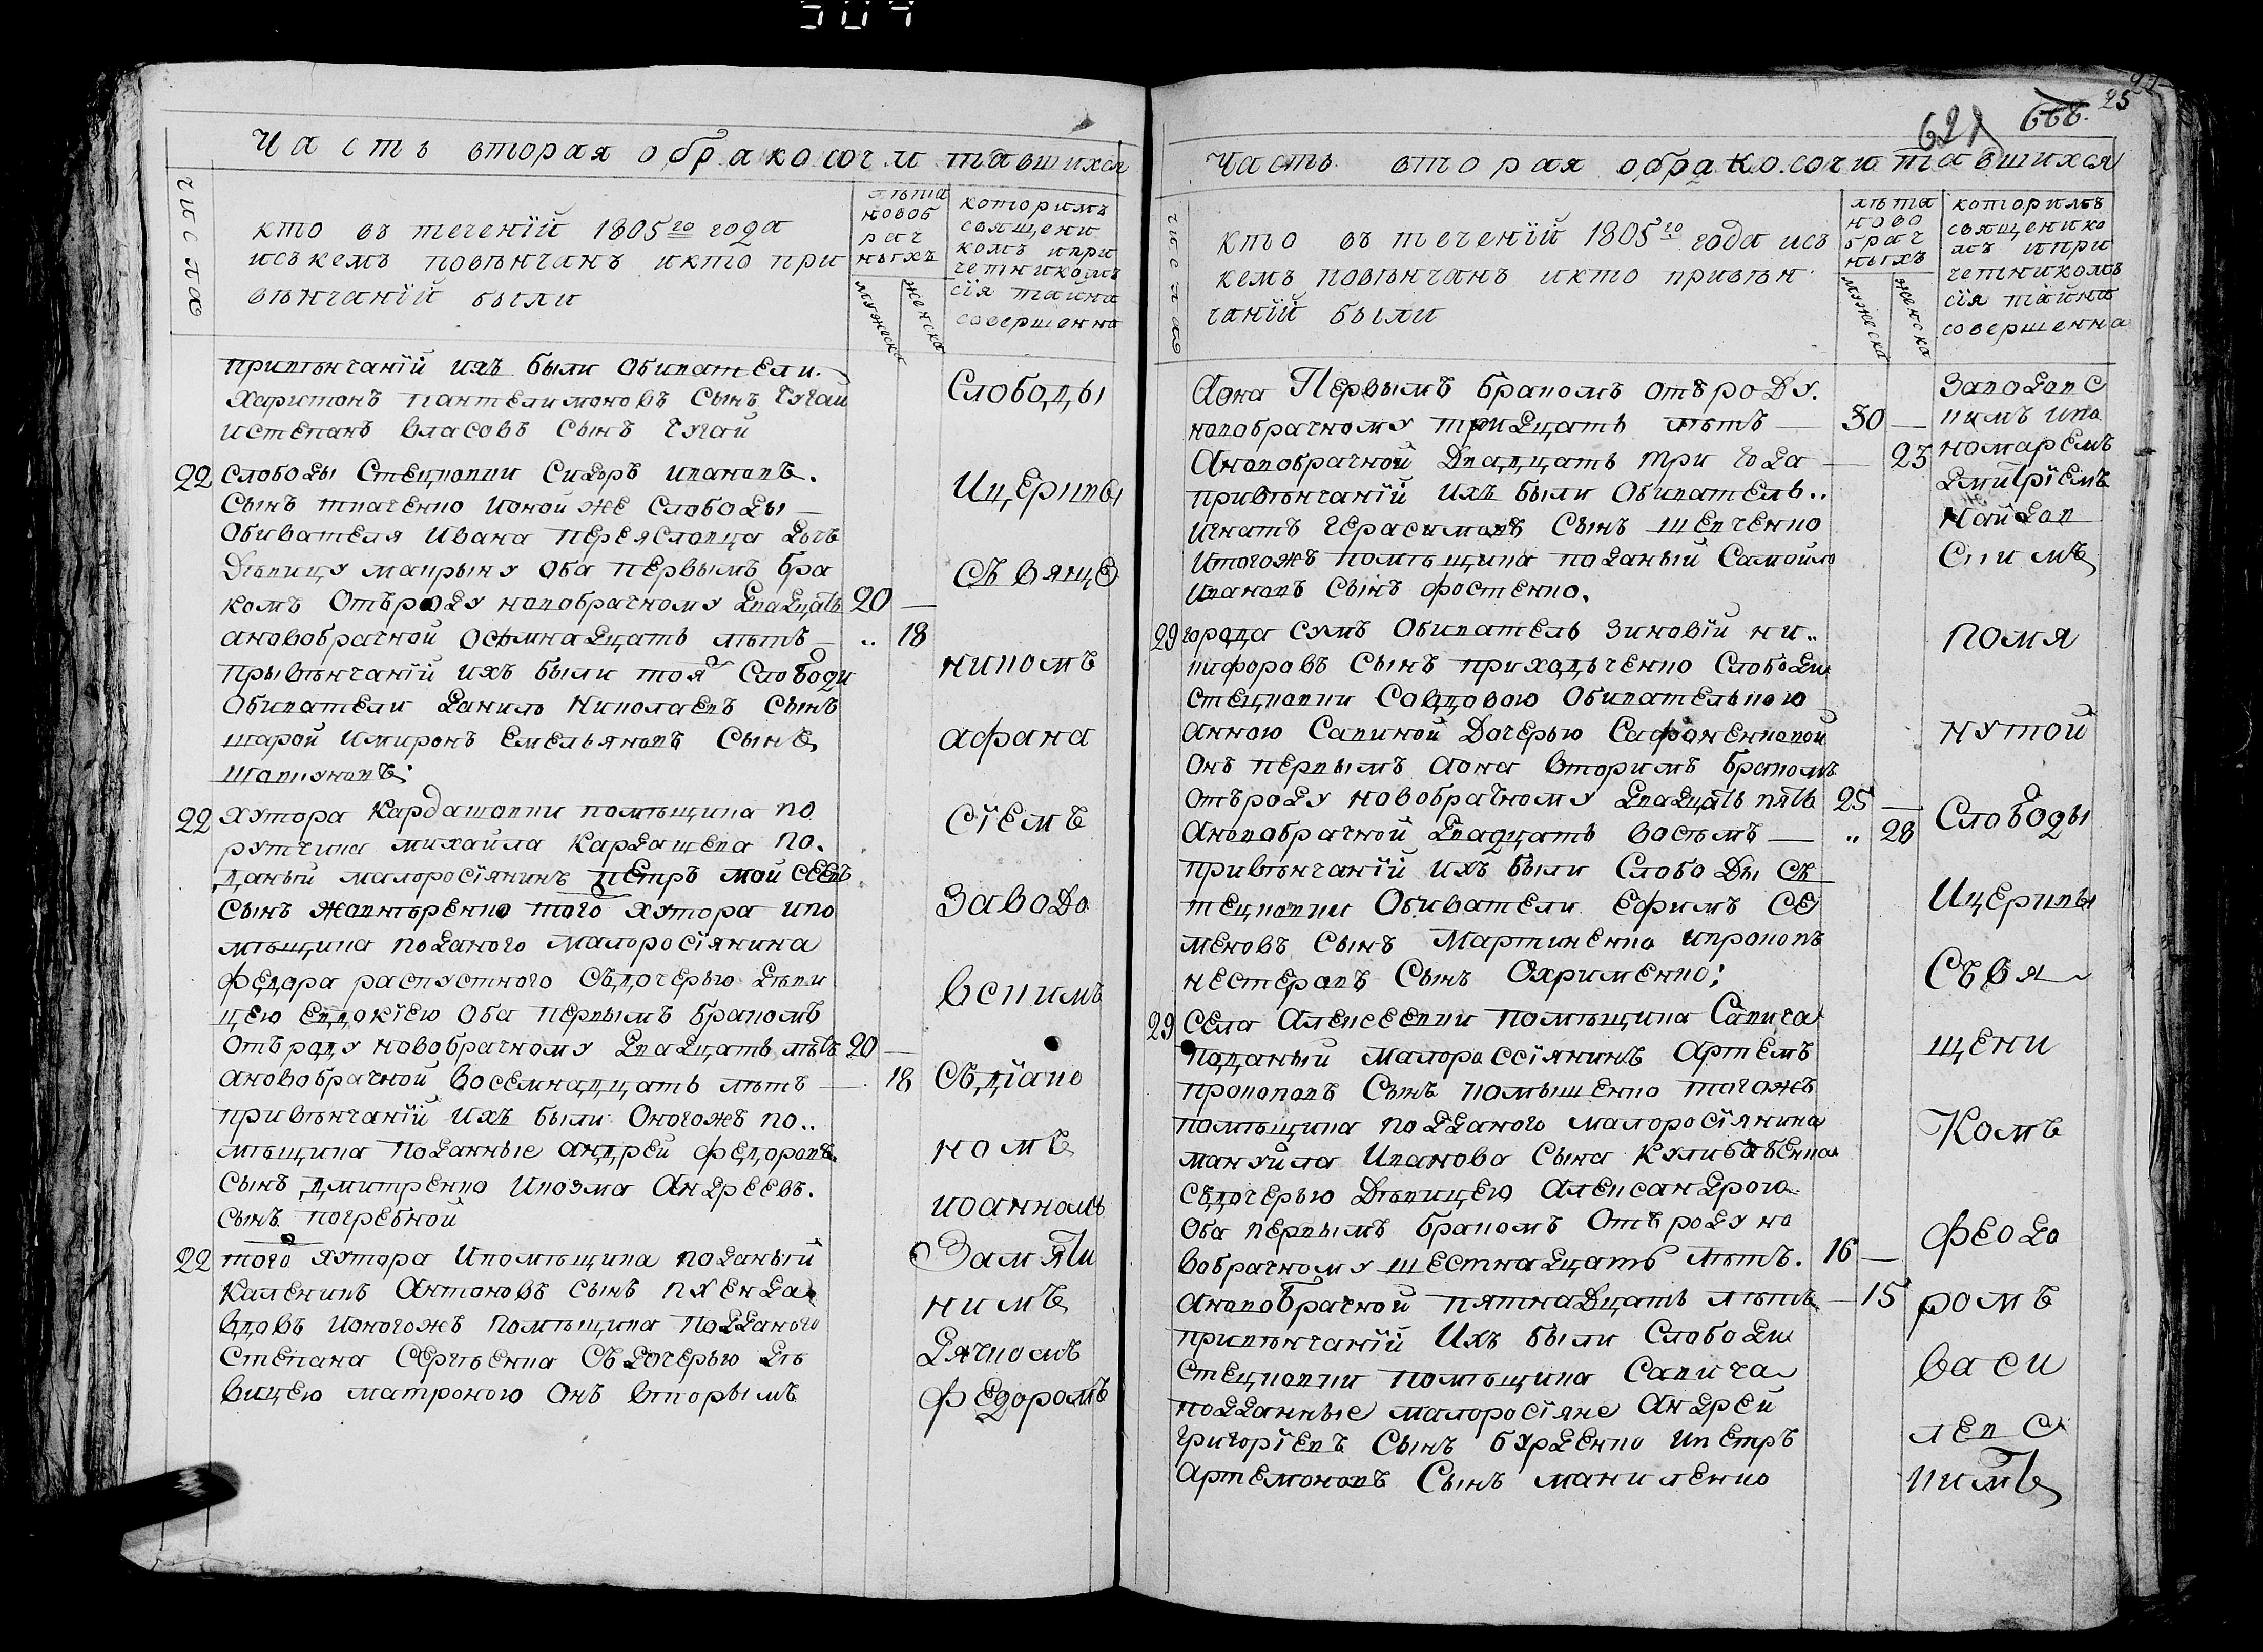 Часть вторая обракосочитавшихся
числа
кто въ теченїй 1805го года
искъмъ повѣнчанъ икто при
вѣнчанїй были
лѣта
новоб
рач
ныхъ
мужеска
женска
которимъ
священи
комъ ипри
четникомъ
сїя тайна
совершенна
привѣнчанїй ихъ были Обиватели
Харитонъ пантелимоновъ Сынъ Чугай
истепанъ власовъ сынъ Чугай
22 слободы Стецковки Сидоръ ивановъ
Сынъ ткаченко ионой же слободы
Обивателя Ивана переясловца дочь
Дѣвицу маирыну Оба первымъ бра
комъ Отъроду новобрачному двадцать 20 —
ановобрачной осьмнадцать лѣтъ — .. 18
прывѣнчанїй ихъ были тоя Слободи
Обиватели Данило Николаевъ Сынъ
шарой имиронъ Емельяновъ Сынъ
22 хутора Кардашовки помѣщика по
рутчика михайла Кардашева по
даный малоросїянинъ петръ мойсеевъ
Сынъ того хутора ипо
мѣщика поданого малоросїянина
федора распустного Съдочерью дѣви
цею Евдокїею Оба первымъ бракомъ
Отъроду новобрачному двадцать лѣтъ 20 —
ановобрачной восемнадцать лѣтъ — 18
привѣнчанїй ихъ были Оногожъ по..
мѣщика поданные андрей федоровъ
Сынъ дмитренко икозма Андреевъ
сынъ погребной
22 того хутора ипомѣщика поданый
Каленикъ Антоновъ сынъ
вдовъ ионогожъ помѣщика подданого
Степана Сергѣенка Съдочерью дѣ
вицею матроною Онъ вторымъ
Слободы
ицеркви
съвяще
никомъ
афана
сїемъ
Заводо
вскимъ
Съдїако
номъ
иоанномъ
Замяти
нимъ
дячкомъ
федоромъ
25
668.
621
Часть вторая обракосочитавшихся
числа
кто въ теченїй 1805го года исъ
кемъ повѣнчанъ икто привѣн
чанїй были
лѣта
ново
брач
ныхъ
мужеска
женска
которимъ
священико
мъ ипри
четникомъ
сїя тайна
совершенна
Аона Первымъ бракомъ отъроду
новобрачному тридцать лѣтъ — 30 —
Ановобрачной Двадцать три года — 23
привѣнчанїй ихъ были Обиватель..
игнатъ герасимовъ Сынъ шевченко
итогожъ помѣщика поданый Самойло
ивановъ Сынъ фостенко.
29 города сумъ Обиватель зиновїй ни..
кифоровъ Сынъ приходченко Слободи
стецковки Совдовою Обивательною
Анною Савиной Дочерью Сафоненковой
Онъ первымъ Аона вторимъ бракомъ
Отъроду новобрачному двадцать пять 25 —
Ановобрачной двадцать восьмъ — .. 28
привѣнчанїй ихъ были Слободы Съ
тецковки Обиватели Ефимъ Се
меновъ Сынъ Мартиненко ипрокопъ
нестеровъ Сынъ Охрименко;
29 Села Алексеевки помѣщика Савича
поданый малороссїянинъ Артемъ
прокоповъ Сынъ помышенко тогожъ
помѣщика подданого малоросїянина
мануйла Иванова Сына Кулибабенка
Съдочерью Дѣвицею Александрою
Оба первымъ бракомъ Отъроду но
вобрачному шестнадцать лѣтъ. 16 —
Ановобрачной пятнадцать лѣтъ — 15
привѣнчанїй Ихъ были Слободи
стецковки помѣщика Савича
подданные малоросїяне Андрей
Григорїевъ Сынъ бурденко ипетръ
Артемоновъ Сынъ маниленко
Заводовс
кимъ ипо
номаремъ
дмитрїемъ
найдов
скимъ
помя
нутой
Слободы
ицеркви
Съвя
щени
комъ
феодо
ромъ
васи
левс
кимъ